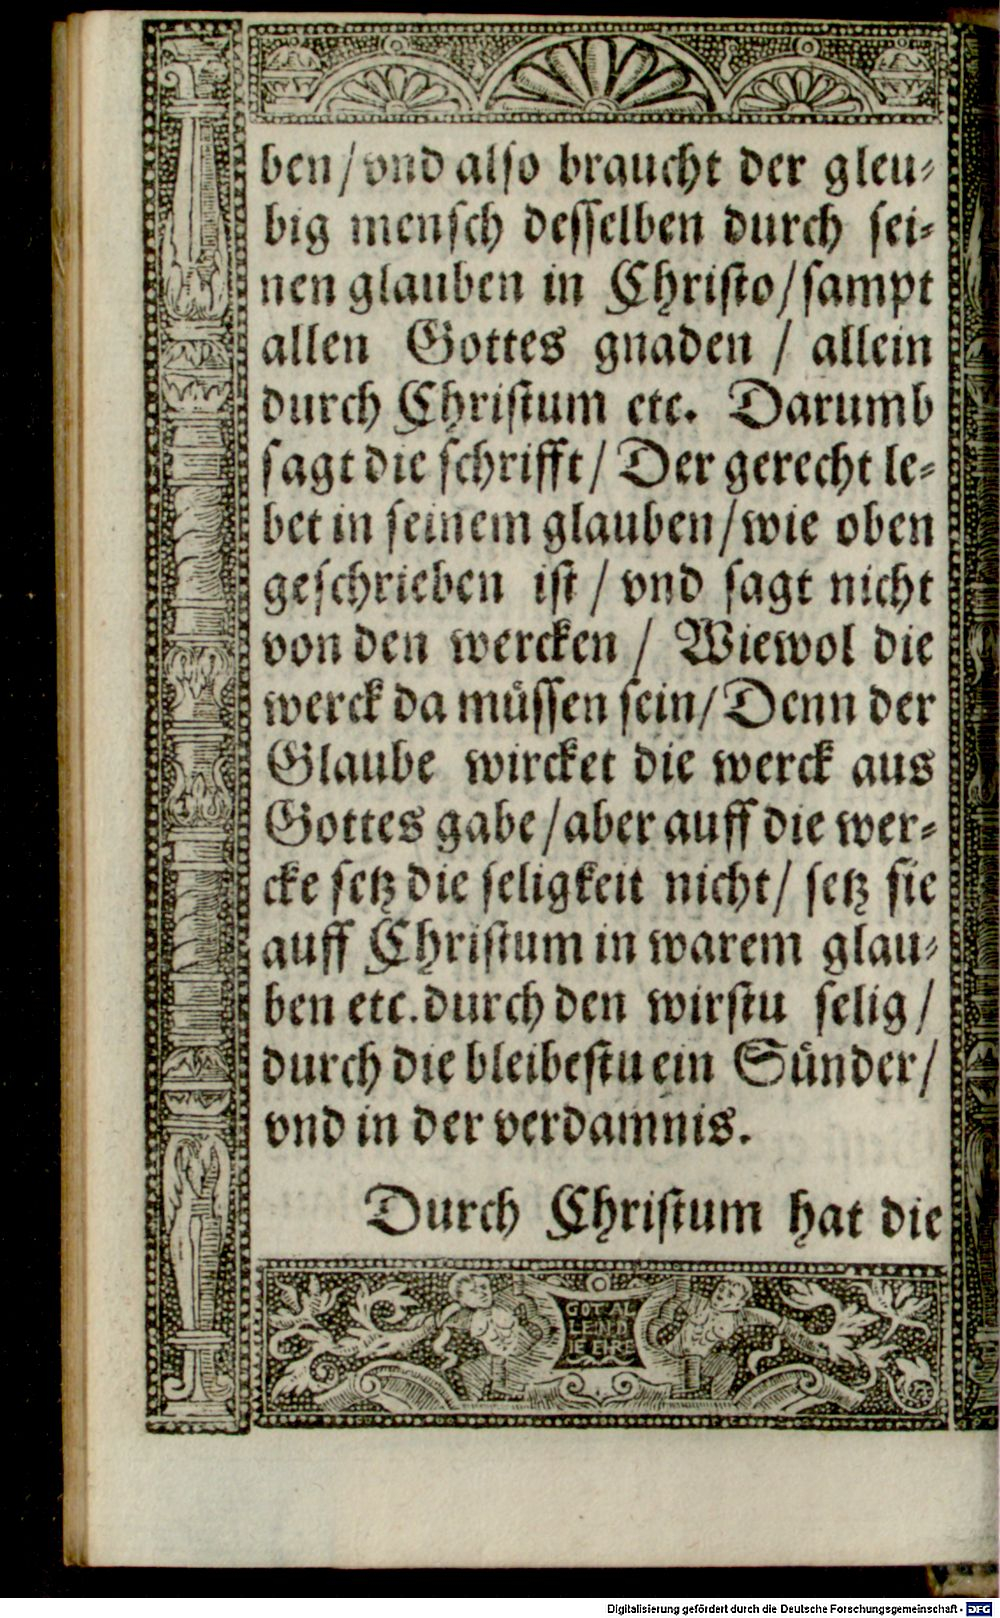 ben/vnd also braucht der gleu-
big mensch desselben durch sei-
nen glauben in Christo/sampt
allen Gottes gnaden / allein
durch Christum etc. Darumb
sagt die schrifft/Der gerecht le-
bet in seinem glauben/wie oben
geschrieben ist / vnd sagt nicht
von den wercken / Wiewol die
werck da müssen sein/Denn der
Glaube wircket die werck aus
Gottes gabe/aber auff die wer-
cke setz die seligkeit nicht/ setz sie
auff Christum in warem glau-
ben etc.durch den wirstu selig/
durch die bleibestu ein Sünder/
vnd in der verdamnis.
Durch Christum hat die
GOT AL
LEIN D
IE EHRE
Digitalisierung gefördert durch die Deutsche Forschungsgemeinschaft - DFG